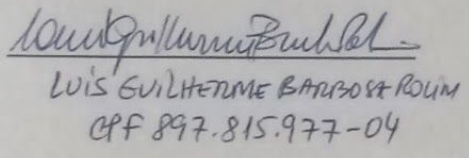 LUIS GUILHERME BARBOSA ROLIM
CPF 897.815.977-04